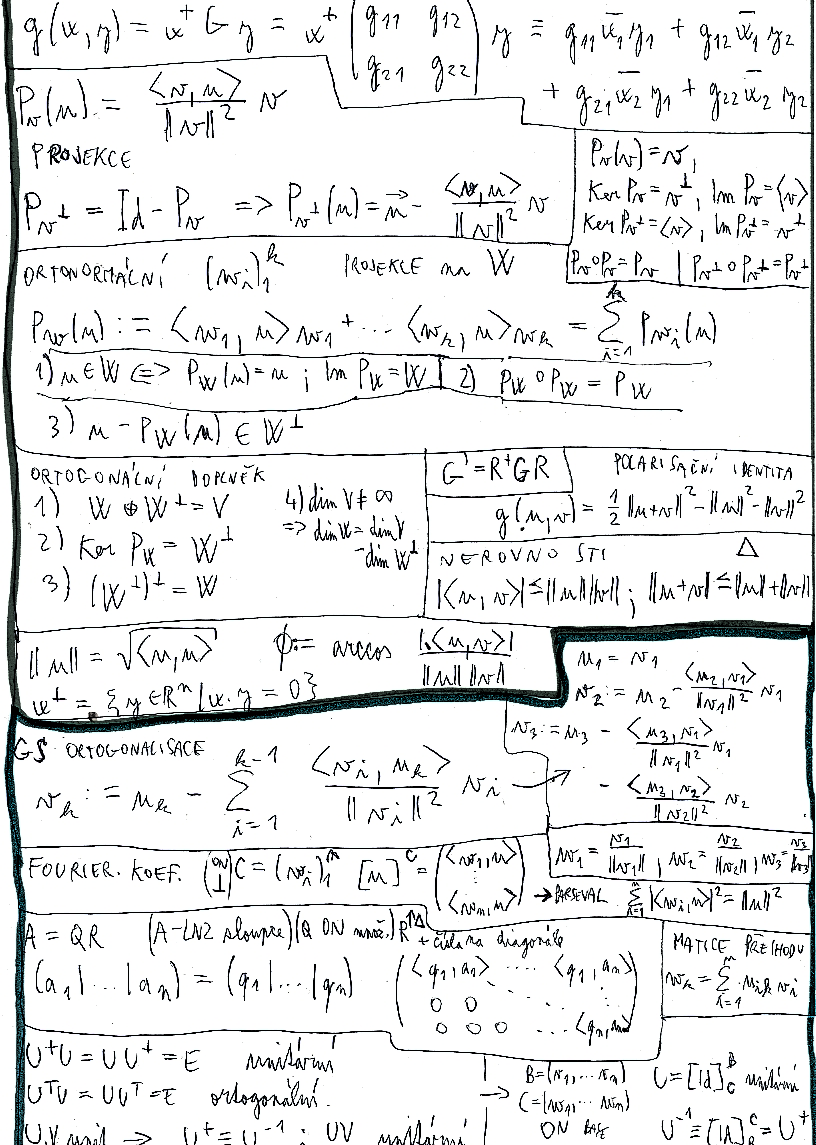 g(x,y) = x⁺ G y = x⁺ (g₁₁ g₁₂ / g₂₁ g₂₂) y ≡ g₁₁ x̄₁ y₁ + g₁₂ x̄₁ y₂
+ g₂₁ x̄₂ y₁ + g₂₂ x̄₂ y₂
Pᵥ(u) = <v,u> / ||v||² v
PROJEKCE
Pᵥ⊥ = Id - Pᵥ => Pᵥ⊥(u) = u⃗ - <v,u> / ||v||² v
Pᵥ(v) = v,
Ker Pᵥ = v⊥, Im Pᵥ = <v>
Ker Pᵥ⊥ = <v>, Im Pᵥ⊥ = v⊥
Pᵥ∘Pᵥ = Pᵥ | Pᵥ⊥ ∘ Pᵥ⊥ = Pᵥ⊥
ORTONORMÁLNÍ (wᵢ)₁ᵏ PROJEKCE na W
P_W(u) := <w₁, u> w₁ + ... <wₖ, u> wₖ = Σᵢ₌₁ᵏ P_wᵢ(u)
1) u ∈ W <=> P_W(u) = u ; Im P_W = W
2) P_W ∘ P_W = P_W
3) u - P_W(u) ∈ W⊥
ORTOGONÁLNÍ DOPLNĚK
1) W ⊕ W⊥ = V
2) Ker P_W = W⊥
3) (W⊥)⊥ = W
4) dim V ≠ ∞
=> dim W = dim V
- dim W⊥
G' = R⁺GR
POLARISAČNÍ IDENTITA
g(u,v) = 1/2 ||u+v||² - ||u||² - ||v||²
NEROVNOSTI Δ
|<u,v>| ≤ ||u|| ||v|| ; ||u+v|| ≤ ||u|| + ||v||
||u|| = √<u,u> φ := arccos |<u,v>| / ||u|| ||v||
x⊥ = {y ∈ Rⁿ | x · y = 0}
u₁ = v₁
v₂ := u₂ - <u₂,v₁> / ||v₁||² v₁
v₃ := u₃ - <u₃,v₁> / ||v₁||² v₁
- <u₃,v₂> / ||v₂||² v₂
GS ORTOGONALISACE
vₖ := uₖ - Σᵢ₌₁ᵏ⁻¹ <vᵢ, uₖ> / ||vᵢ||² vᵢ →
w₁ = v₁/||v₁||, w₂ = v₂/||v₂||, w₃ = v₃/||v₃||
FOURIER. KOEF. (ON ⊥) C = (wᵢ)₁ⁿ [u]ᶜ = (<w₁,u> ⋮ <wₙ,u>) → PARSEVAL Σᵢ₌₁ⁿ |<wᵢ,u>|² = ||u||²
A = QR (A-LNZ sloupce) (Q ON množ.) R
+ čísla na diagonále
(a₁|...|aₙ) = (q₁|...|qₙ) (<q₁,a₁> .... <q₁,aₙ>
0 0
0 0 0 ... <qₙ,aₙ>)
MATICE PŘECHODU
wₖ = Σᵢ₌₁ⁿ uᵢₖ vᵢ
U⁺U = UU⁺ = E unitární
UᵀU = UUᵀ = E ortogonální.
U,V unit → U⁺ = U⁻¹ ; UV unitární
→ B = (v₁, ... vₙ)
C = (w₁, ... wₙ)
ON BASE
U = [Id]_Cᴮ unitární
U⁻¹ = [Id]_Bᶜ = U⁺